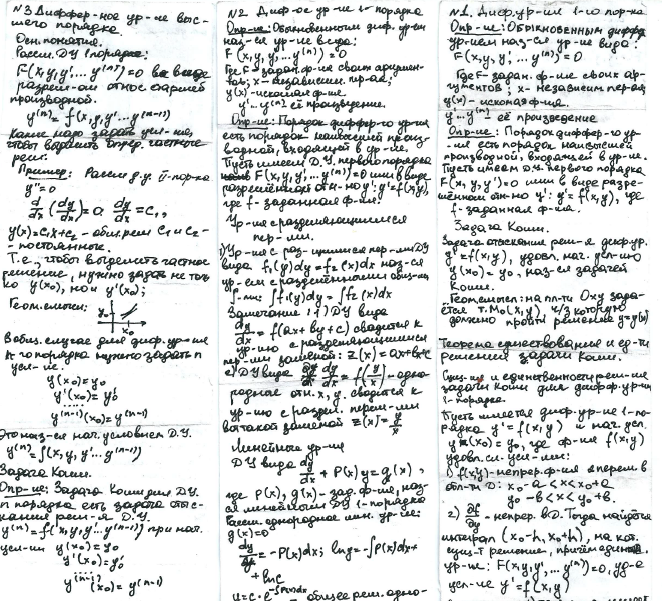 N3 Диффер-ное ур-ние высшего порядка.
Осн. понятия.
Рассм. ДУ 1 порядка:
F(x,y,y'...y^(n))=0
разреш-ли относ. старшей
производной.
y^(n)=f(x,y,y'...y^(n-1))
Какие надо задать усл-ния,
чтобы выделить опред. частные
реш.
Пример: Рассм д.у. II-пор-ка
y''=0
d/dx (dy/dx)=0 dy/dx=C₁,
y(x)=C₁x+C₂ - общ. реш C₁ и C₂ -
- постоянные.
Т.е., чтобы выделить частное
решение, нужно задать не толь
ко y(x₀), но и y'(x₀);
Геом. смысл:
y₀
x₀
В общ. случае для диф. ур-ния
n-го порядка нужно задать n
усл-ие.
y(x₀)=y₀
y'(x₀)=y₀'
y^(n-1)(x₀)=y^(n-1)
Это наз-ся нач. условием Д.У.
y^(n)=f(x,y,y'...y^(n-1))
Задача Коши.
Опр-ие: Задача Коши для ДУ
n порядка есть задача отыс-
кания реш-я Д.У.
y^(n)=f(x,y,y'...y^(n-1)) при нач.
усл-ии y(x₀)=y₀
y'(x₀)=y₀'
y^(n-1)(x₀)=y^(n-1)
N2 Диф-ое ур-ние 1- порядка
Опр-ие: Обыкновенным диф. ур-ем
наз-ся ур-ие вида:
F(x,y,y',...y^(n))=0
Где F-задан. ф-ие своих аргумен-
тов; x-независим. пер-ая;
y(x)-искомая ф-ие
y'...y^(n) её произведение.
Опр-ие: Порядок диффер-го ур-ия
есть порядок наивысшей произ-
водной, входящей в ур-ие.
Пусть имеем Д.У. первого порядка
F(x,y,y',...y^(n))=0 или в виде
разрешённом отн-но y': y'=f(x,y),
где f-заданная ф-ия.
Ур-ие с разделяющимися
пер-ми.
1) Ур-ие с раз-щимися пер-ми ДУ
вида f₁(y)dy=f₂(x)dx наз-ся
ур-ем с разделёнными
∫f₁(y)dy=∫f₂(x)dx
Замечание: 1) ДУ вида
dy/dx=f(ax+by+c) сводится к
ур-ию с разделяющимися
пер-ми заменой: z(x)=ax+by+c
2) ДУ вида dy/dx=f(y/x)-одно-
родная отн. x,y. сводится к
ур-ию с раздел. перем-ми
заменой z(x)=y/x
Линейные ур-ие
ДУ вида dy/dx+P(x)y=g(x),
где P(x), g(x)-зад. ф-ие, наз-
ся линейным ДУ 1-порядка
Рассм. однородное лин. ур-ие:
g(x)=0
dy/y=-P(x)dx; lny=-∫P(x)dx+
+lnC
y=C·e^(-∫P(x)dx) общее реш. одно-
N1. Диф. ур-ия 1-го пор-ка
Опр-ие: Обыкновенным дифф.
ур-ием наз-ся ур-ие вида:
F(x,y,y',...y^(n))=0
Где F-задан. ф-ие своих ар-
гументов; x-независим пер-ая
y(x)-искомая ф-ие.
y'...y^(n) её произведение
Опр-ие: Порядок диффер-го ур-
ия есть порядок наивысшей
производной, входящей в ур-ие.
Пусть имеем Д.У. первого порядка
F(x,y,y')=0 или в виде разре-
шённом отн-но y': y'=f(x,y), где
f-заданная ф-ия.
Задача Коши.
Задача отыскания реш-я диф. ур.
y'=f(x,y), удовл. нач. усл-ию
y(x₀)=y₀, наз-ся задачей
Коши.
Геом. смысл: на пл-ти Oxy зада-
ётся т. M₀(x,y), ч/з которую
должно пройти решение y=y(x)
Теорема существования и ед-ти
решения задачи Коши.
Сущ-ия и единственности реш-ие
задачи Коши для дифф. ур-ия
1-порядка.
Пусть имеется диф. ур-ие 1-по-
рядка y'=f(x,y) и нач. усл.
y(x₀)=y₀, где ф-ия f(x,y)
удовл. сл. усл-ию:
1) f(x,y)-непрер. ф-ия 2 перем. в
обл-ти D: x₀-a<x<x₀+a
y₀-b<y<y₀+b.
2) ∂f/∂y - непрер. в D. Тогда найдётся
интервал (x₀-h, x₀+h), на кот.
сущ-т решение, причём единств.
ур-ие: F(x,y,y',...y^(n))=0,
y'=f(x,y)